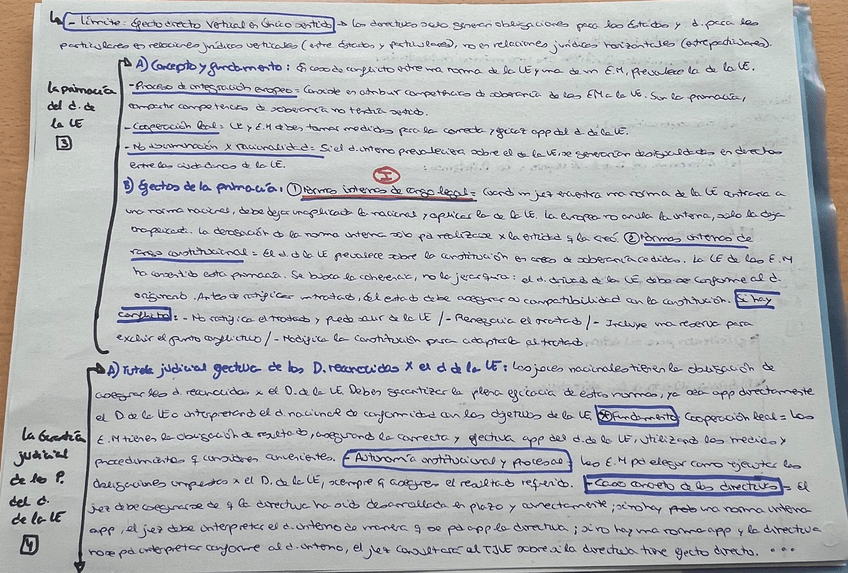 - Límite: Efecto directo Vertical en único sentido → las directivas solo generan obligaciones para los Estados y d. para los
particulares en relaciones jurídicas verticales (entre Estados y particulares), no en relaciones jurídicas horizontales (entre particulares).
La primacía del d. de la UE [3]
A) Concepto y fundamento: En caso de conflicto entre una norma de la UE y una de un E.M, prevalece la de la UE.
- Proceso de integración europeo = Consiste en atribuir competencias de soberanía de los EM a la UE. Sin la primacía,
compartir competencias de soberanía no tendría sentido.
- Cooperación leal = UE y E.M deben tomar medidas para la correcta y eficaz app del d. de la UE.
- No discriminación x nacionalidad = Si el d. interno prevaleciera sobre el de la UE, se generarían desigualdades en derechos
entre los ciudadanos de la UE.
I
B) Efectos de la primacía: ① Normas internas de rango legal = Cuando un juez encuentra una norma de la UE contraria a
una norma nacional, debe dejar inaplicada la nacional y aplicar la de la UE. La europea no anula la interna, solo la deja
inaplicada. La derogación de la norma interna solo pd realizarse x la entidad q la creó. ② Normas internas de
rango constitucional = El d. d la UE prevalece sobre la constitución en casos de soberanía cedidos. La CE de los E.M
ha consentido esta primacía. Se busca la coherencia, no la jerarquía: el d. derivado de la UE debe ser conforme al d.
originario. Antes de ratificar un tratado, el estado debe asegurar su compatibilidad con la constitución. Si hay
conflicto: - No ratifica el tratado y puede salir de la UE / - Renegocia el tratado / - Incluye una reserva para
excluir el punto conflictivo / - Modifica la Constitución para adaptarla al tratado.
La Garantía judicial de los P. del d. de la UE [4]
A) Tutela judicial efectiva de los D. reconocidos x el d de la UE: Los jueces nacionales tienen la obligación de
asegurar los d. reconocidos x el D. de la UE. Deben garantizar la plena eficacia de estas normas, ya sea app directamente
el D de la UE o interpretando el d. nacional de conformidad con los objetivos de la UE. Fundamento Cooperación leal = Los
E.M tienen la obligación de resultado, asegurando la correcta y efectiva app del d. de la UE, utilizando los medios y
procedimientos q consideren convenientes. - Autonomía institucional y procesal = Los E.M pd elegir como ejecutar las
obligaciones impuestas x el D. de la UE, siempre q aseguren el resultado requerido. - Caso concreto de las directivas = El
juez debe asegurarse de q la directiva ha sido desarrollada en plazo y correctamente; si no hay una norma interna
app, el juez debe interpretar el d. interno de manera q se pd app la directiva; si no hay una norma app y la directiva
no se pd interpretar conforme al d. interno, el juez consultará al TJUE sobre si la directiva tiene efecto directo. ...